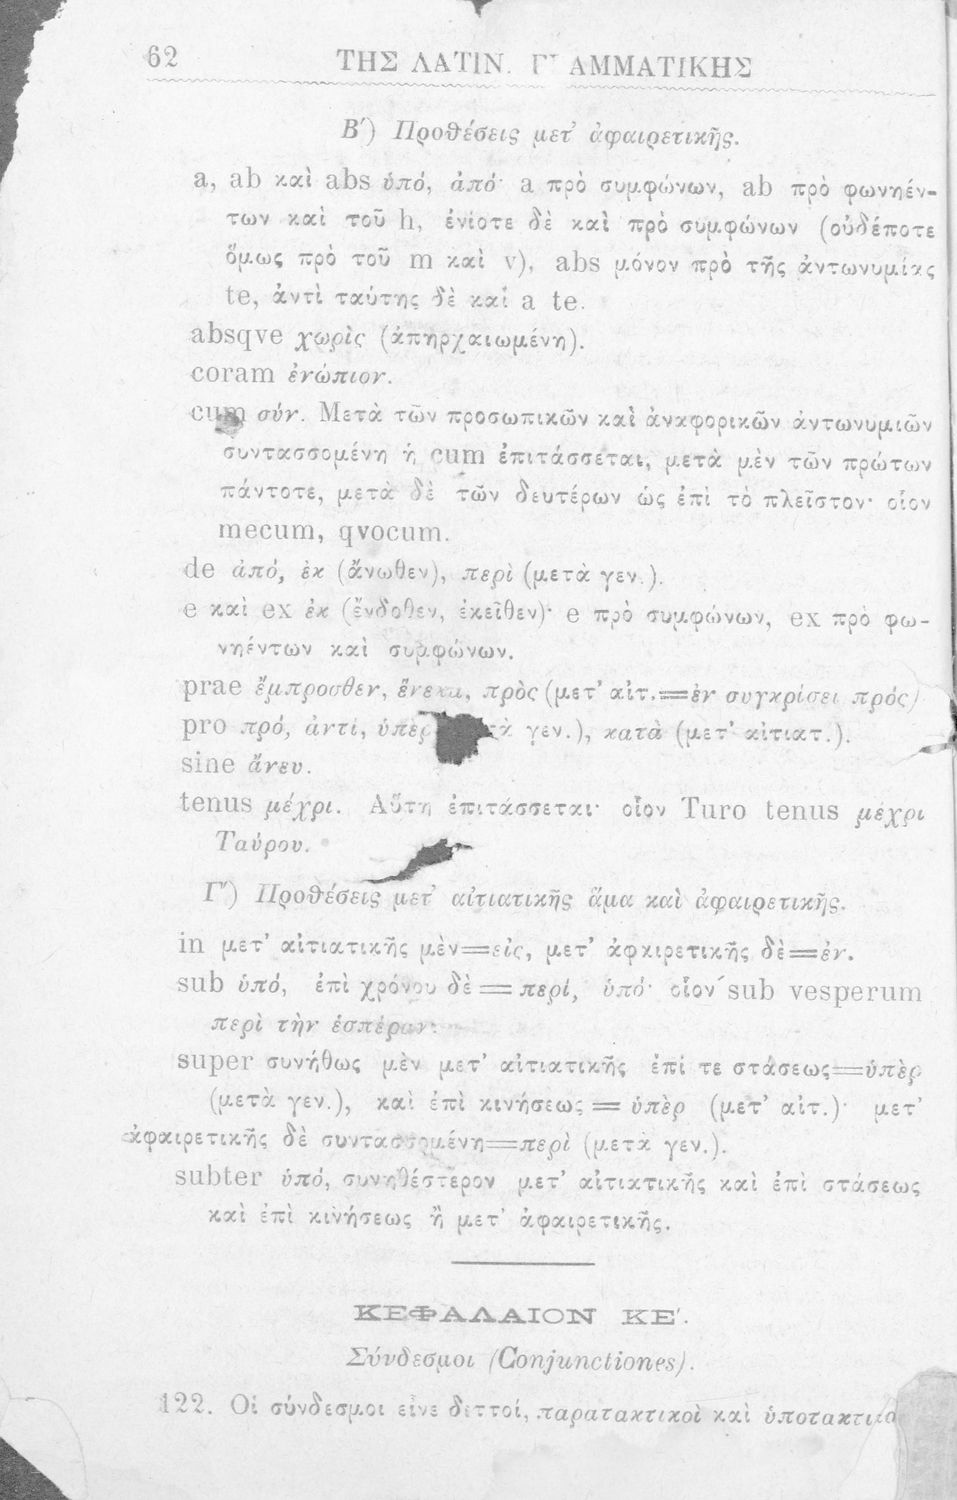 62 ΤΗΣ ΛΑΤΙΝ. ΓΡΑΜΜΑΤΙΚΗΣ
Β′) Προθέσεις μετ’ ἀφαιρετικῆς.
a, ab καὶ abs ὑπό, ἀπό· a πρὸ συμφώνων, ab πρὸ φωνηέν-
των καὶ τοῦ h, ἐνίοτε δὲ καὶ πρὸ συμφώνων (οὐδέποτε
ὅμως πρὸ τοῦ m καὶ v), abs μόνον πρὸ τῆς ἀντωνυμίας
te, ἀντὶ ταύτης δὲ καὶ a te.
absqve χωρὶς (ἀπηρχαιωμένη).
coram ἐνώπιον.
cum σύν. Μετὰ τῶν προσωπικῶν καὶ ἀναφορικῶν ἀντωνυμιῶν
συντασσομένη ἡ cum ἐπιτάσσεται, μετὰ μὲν τῶν πρώτων
πάντοτε, μετὰ δὲ τῶν δευτέρων ὡς ἐπὶ τὸ πλεῖστον· οἷον
mecum, qvocum.
de ἀπό, ἐκ (ἄνωθεν), περὶ (μετὰ γεν.).
e καὶ ex ἐκ (ἔνδοθεν, ἐκεῖθεν)· e πρὸ συμφώνων, ex πρὸ φω-
νηέντων καὶ συμφώνων.
prae ἔμπροσθεν, ἕνεκα, πρὸς (μετ’ αἰτ.=ἐν συγκρίσει πρός)
pro πρό, ἀντί, ὑπὲρ γεν.), κατὰ (μετ’ αἰτιατ.).
sine ἄνευ.
tenus μέχρι. Αὕτη ἐπιτάσσεται· οἷον Turo tenus μέχρι
Ταύρου.
Γ′) Προθέσεις μετ’ αἰτιατικῆς ἅμα καὶ ἀφαιρετικῆς.
in μετ’ αἰτιατικῆς μὲν=εἰς, μετ’ ἀφαιρετικῆς δὲ=ἐν.
sub ὑπό, ἐπὶ χρόνου δὲ = περί, ὑπό· οἷον sub vesperum
περὶ τὴν ἑσπέραν.
super συνήθως μὲν μετ’ αἰτιατικῆς ἐπί τε στάσεως=ὑπὲρ
(μετὰ γεν.), καὶ ἐπὶ κινήσεως = ὑπὲρ (μετ’ αἰτ.)· μετ’
ἀφαιρετικῆς δὲ συντασσομένη=περὶ (μετὰ γεν.).
subter ὑπό, συνηθέστερον μετ’ αἰτιατικῆς καὶ ἐπὶ στάσεως
καὶ ἐπὶ κινήσεως ἢ μετ’ ἀφαιρετικῆς.
ΚΕΦΑΛΑΙΟΝ ΚΕ′.
Σύνδεσμοι (Conjunctiones).
122. Οἱ σύνδεσμοι εἶνε διττοί, παρατακτικοὶ καὶ